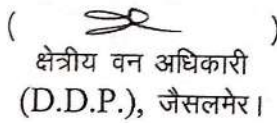 ( )
क्षेत्रीय वन अधिकारी
(D.D.P.), जैसलमेर।